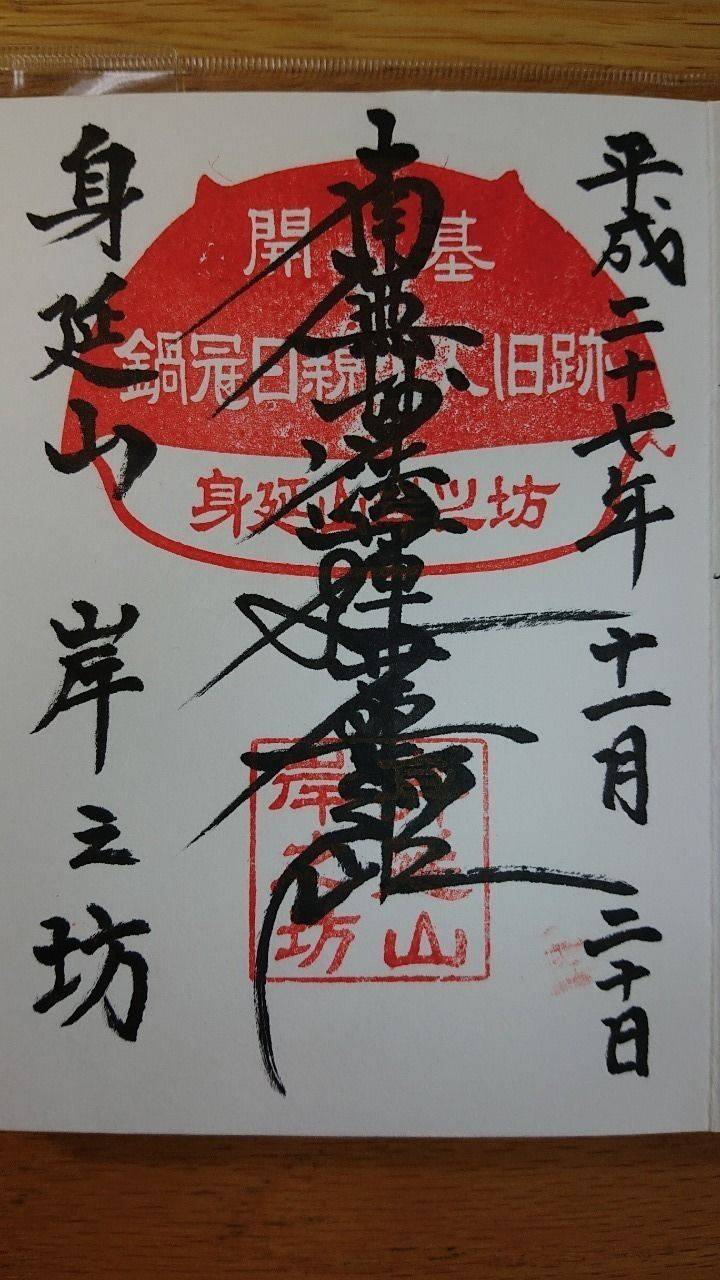 平成二十七年 十一月 二十日
南無妙法蓮華經
身延山 岸之坊
開基
鍋冠日親上人旧跡
身延山岸之坊
身延山
岸之坊